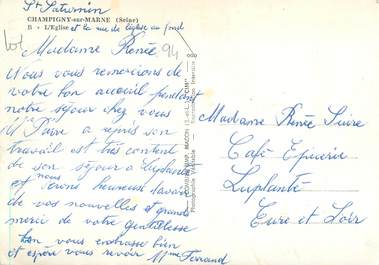 St Saturnin
CHAMPIGNY-sur-MARNE (Seine)
B - L'Eglise et la rue de l'église au fond
94
Madame Renée
Nous vous remercions de
votre bon accueil pendant
notre séjour chez vous
a repris son
travail et est très content
de son séjour à Luplanté
nous serons heureuse d'avoir
de vos nouvelles et grand
merci de votre gentillesse
bon vous embrasse bien
et espère vous revoir Mme Ferrand
COMBIER IMP. MACON (S.-et-L.) "CIM"
Photographie Véritable - Reproduction Interdite
Madame Renée
Café Epicerie
Luplanté
Eure et Loir